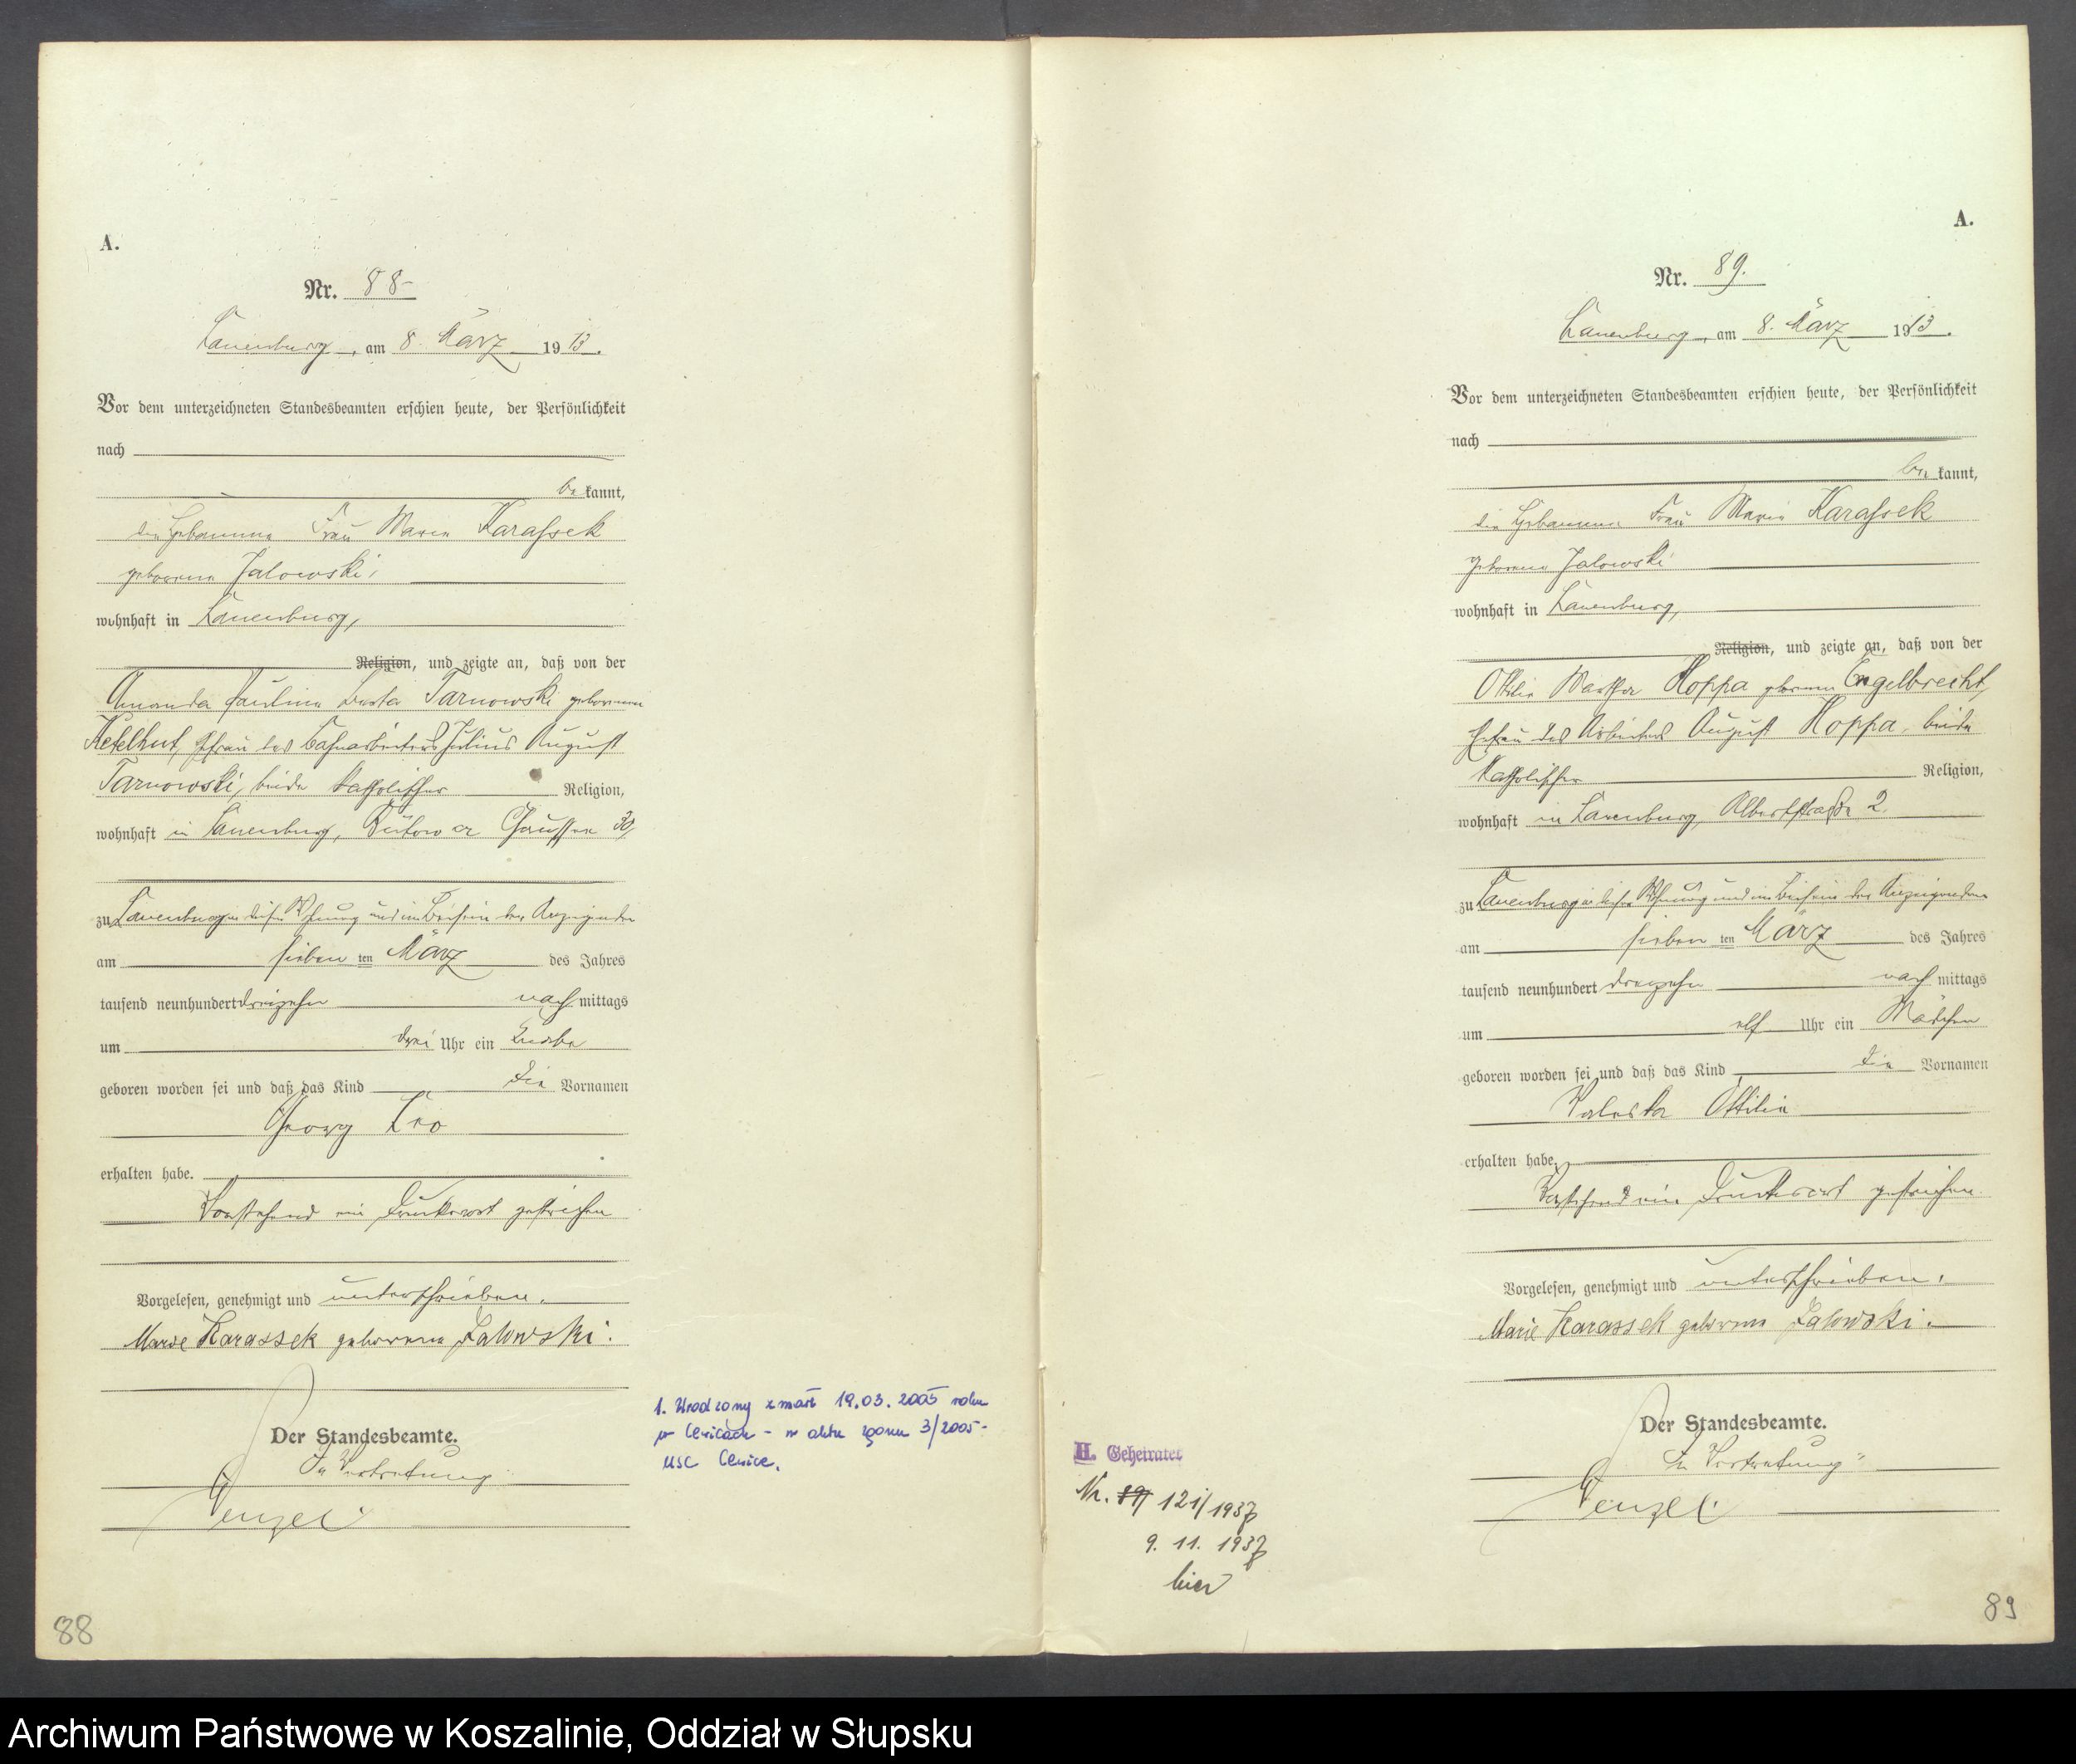 A.
Nr. 88
Lauenburg, am 8. März 1913.
Vor dem unterzeichneten Standesbeamten erschien heute, der Persönlichkeit
nach
bekannt,
die Hebamme Frau Marie Karassek
geborene Jalowski,
wohnhaft in Lauenburg,
Religion, und zeigte an, daß von der
Amanda Pauline Tarnowski geborenen
Kekelhut, Ehefrau des Bahnarbeiters Julius August
Tarnowski, beide katholischer Religion,
wohnhaft in Lauenburg, Bütower Chaussee 30,
zu Lauenburg in dieser Wohnung und im Beisein der Anzeigenden
am sieben ten März des Jahres
tausend neunhundert dreizehn nach mittags
um drei Uhr ein Knabe
geboren worden sei und daß das Kind die Vornamen
Georg Leo
erhalten habe.
Vorstehend ein Druckwort gestrichen
Vorgelesen, genehmigt und unterschrieben.
Marie Karassek geborene Jalowski.
Der Standesbeamte.
In Vertretung
Wenzel
1. Urodzony zmarł 19.03.2005 roku
w Cewicach - nr aktu zgonu 3/2005 -
USC Cewice.
88
A.
Nr. 89.
Lauenburg, am 8. März 1913.
Vor dem unterzeichneten Standesbeamten erschien heute, der Persönlichkeit
nach
bekannt,
die Hebamme Frau Marie Karassek
geborene Jalowski
wohnhaft in Lauenburg,
Religion, und zeigte an, daß von der
Ottilie Martha Hoppa geborenen Engelbrecht,
Ehefrau des Arbeiters August Hoppa, beide
katholischer Religion,
wohnhaft in Lauenburg, Albertstraße 2.
zu Lauenburg in dieser Wohnung und im Beisein der Anzeigenden
am sieben ten März des Jahres
tausend neunhundert dreizehn nach mittags
um elf Uhr ein Mädchen
geboren worden sei und daß das Kind die Vornamen
Valeska Ottilie
erhalten habe.
Vorstehend ein Druckwort gestrichen.
Vorgelesen, genehmigt und unterschrieben.
Marie Karassek geborene Jalowski.
Der Standesbeamte.
In Vertretung
Wenzel
H. Geheiratet
Nr. 121/1937
9. 11. 1937
hier
89
Archiwum Państwowe w Koszalinie, Oddział w Słupsku